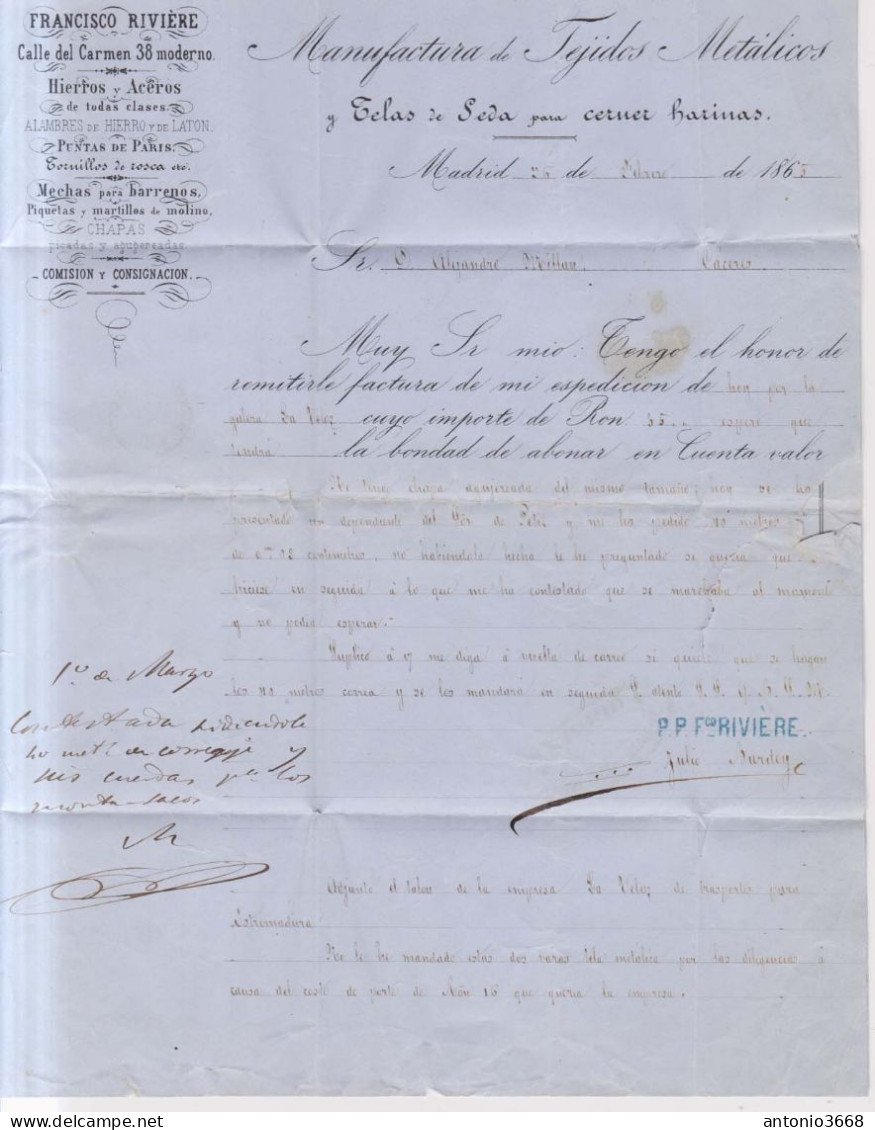 FRANCISCO RIVIÈRE
Calle del Carmen 38 moderno.
Hierros y Aceros
de todas clases.
ALAMBRES DE HIERRO Y DE LATON.
PUNTAS DE PARIS.
Tornillos de rosca etc.
Mechas para barrenos,
Piquetas y martillos de molino,
CHAPAS
picadas y agujereadas
COMISION Y CONSIGNACION.
Manufactura de Tejidos Metálicos
y Telas de Seda para cerner harinas.
Madrid 26 de Febrero de 1865
Sr. D. Alejandro Millan, Caceres
Muy Sr mio: Tengo el honor de
remitirle factura de mi espedicion de hoy por la
galera La Veloz cuyo importe de Rvn. 35,, espero que
tendrá la bondad de abonar en Cuenta valor
No tengo chapa agujereada del mismo tamaño; hoy se ha
presentado un dependiente del Sór. de y me ha pedido 20 metros
de centimetros, no habiendola hecha le he preguntado se queria que
hiciese en seguida á lo que me ha contestado que se marchaba al momento
y no podia esperar.
Suplico á V me diga á vuelta de correo si quiere que se hagan
los metros correa y se los mandará en seguida S. atento S. S. q. B. S. M.
P.P. Fco RIVIÈRE.
Julio
1º de Marzo
Contestada pidiendole
metr de correaje y
seis cuerdas pa. los
monta-sacos
M
Adjunto el talon de la empresa La Veloz de trasportes para
Estremadura.
No le he mandado estas dos varas tela metálica por las diligencias á
causa del coste de porte de Rvn 16 que queria la empresa.
antonio3668